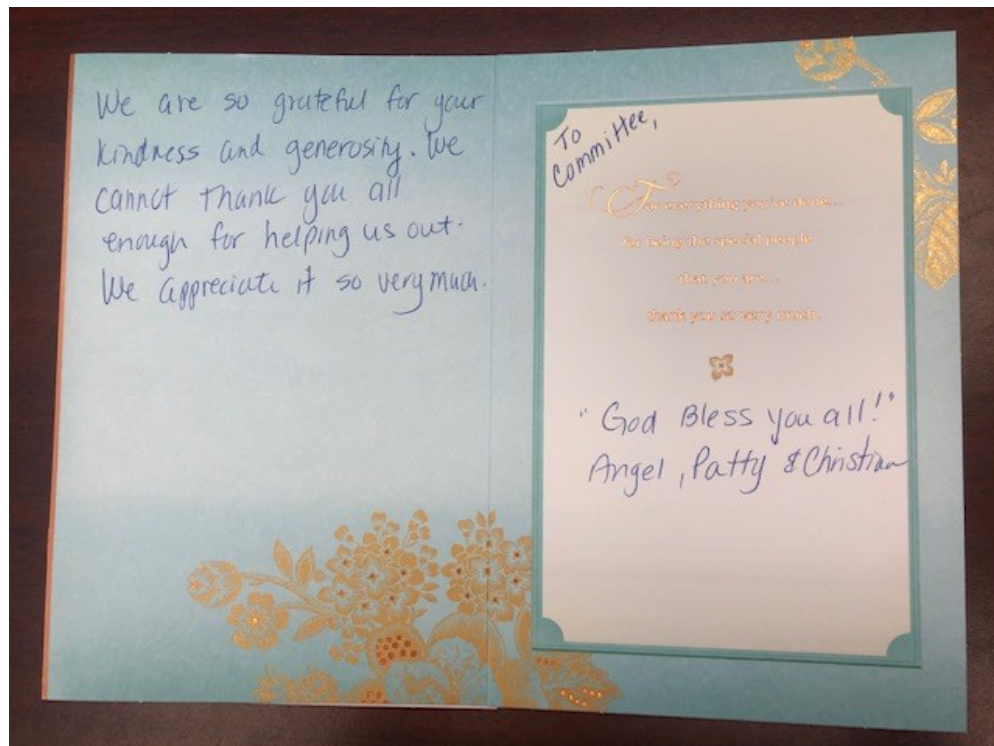 We are so grateful for your
kindness and generosity. We
cannot thank you all
enough for helping us out.
We appreciate it so very much.
To
Committee,
For everything you've done...
for being the special people
that you are...
thank you so very much.
"God Bless you all!"
Angel, Patty & Christian